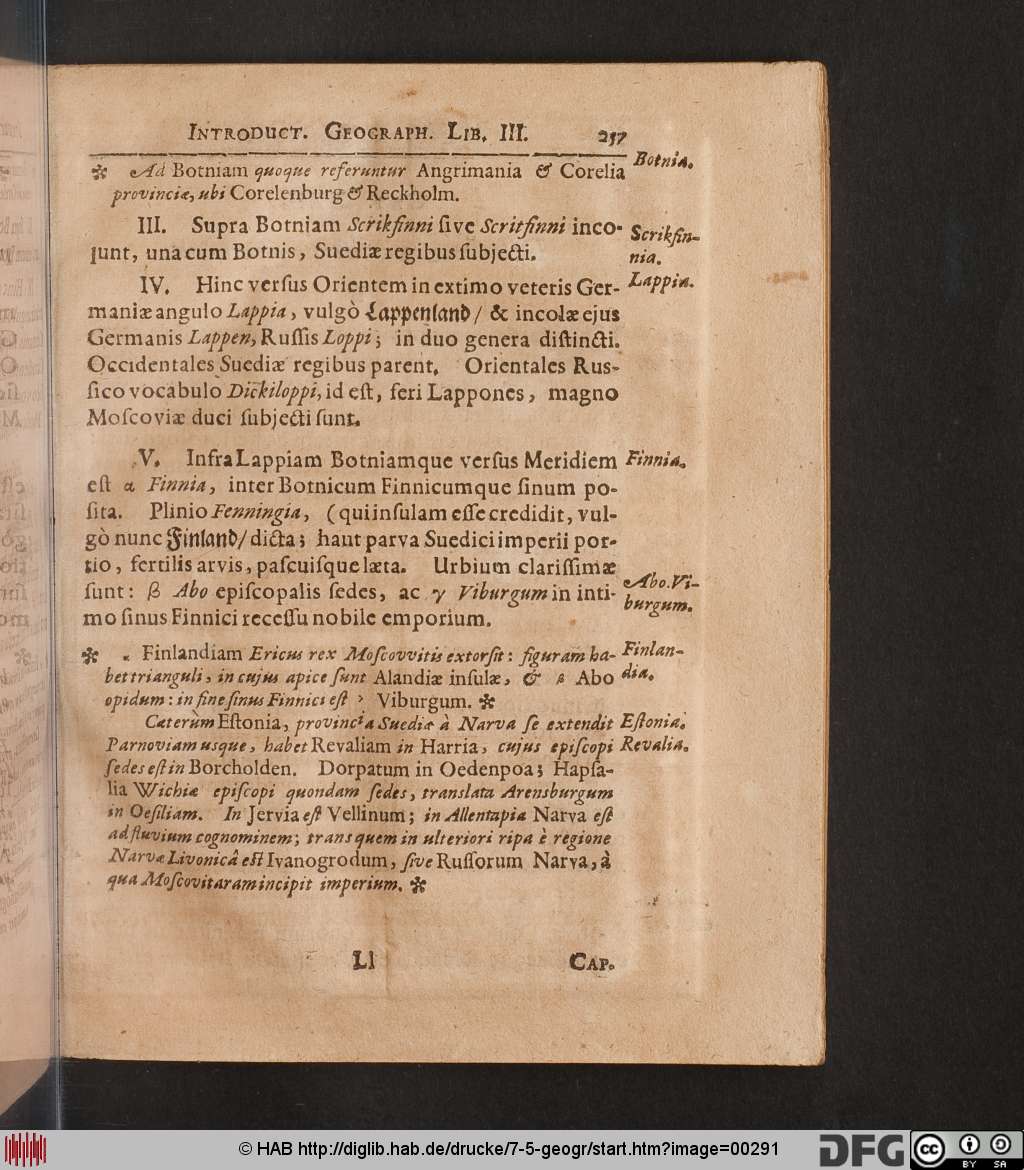 INTRODUCT. GEOGRAPH. LIB. III. 257
✻ Ad Botniam quoque referuntur Angrimania & Corelia
provinciæ, ubi Corelenburg & Reckholm.
Botnia.
III. Supra Botniam Scrikfinni ſive Scritfinni inco-
lunt, una cum Botnis, Suediæ regibus ſubjecti.
Scrikfin-
nia.
IV. Hinc verſus Orientem in extimo veteris Ger-
maniæ angulo Lappia, vulgò Lappenland/ & incolæ ejus
Germanis Lappen, Ruſſis Loppi; in duo genera diſtincti.
Occidentales Suediæ regibus parent. Orientales Rus-
ſico vocabulo Dickiloppi, id eſt, feri Lappones, magno
Moſcoviæ duci ſubjecti ſunt.
Lappia.
V. Infra Lappiam Botniamque verſus Meridiem
eſt α Finnia, inter Botnicum Finnicumque ſinum po-
ſita. Plinio Fenningia, (qui inſulam eſſe credidit, vul-
gò nunc Finland/ dicta; haut parva Suedici imperii por-
tio, fertilis arvis, paſcuiſque læta. Urbium clariſſimæ
ſunt: β Abo epiſcopalis ſedes, ac γ Viburgum in inti-
mo ſinus Finnici receſſu nobile emporium.
Finnia.
Abo. Vi-
burgum.
✻ α Finlandiam Ericus rex Moſcovvitis extorſit: figuram ha-
bet trianguli, in cujus apice ſunt Alandiæ inſulæ, & β Abo
opidum: in fine ſinus Finnici eſt γ Viburgum. ✻
Finlan-
dia.
Cæterùm Eſtonia, provincia Suediæ à Narva ſe extendit
Parnoviam usque, habet Revaliam in Harria, cujus epiſcopi
ſedes eſt in Borcholden. Dorpatum in Oedenpoa; Hapſa-
lia Wichiæ epiſcopi quondam ſedes, translata Arensburgum
in Oeſiliam. In Jervia eſt Vellinum; in Allentapia Narva eſt
ad fluvium cognominem; trans quem in ulteriori ripa è regione
Narvæ Livonicâ eſt Ivanogrodum, ſive Ruſſorum Narva, à
qua Moſcovitaram incipit imperium. ✻
Eſtonia.
Revalia.
Ll CAP.
© HAB http://diglib.hab.de/drucke/7-5-geogr/start.htm?image=00291
DFG cc BY SA